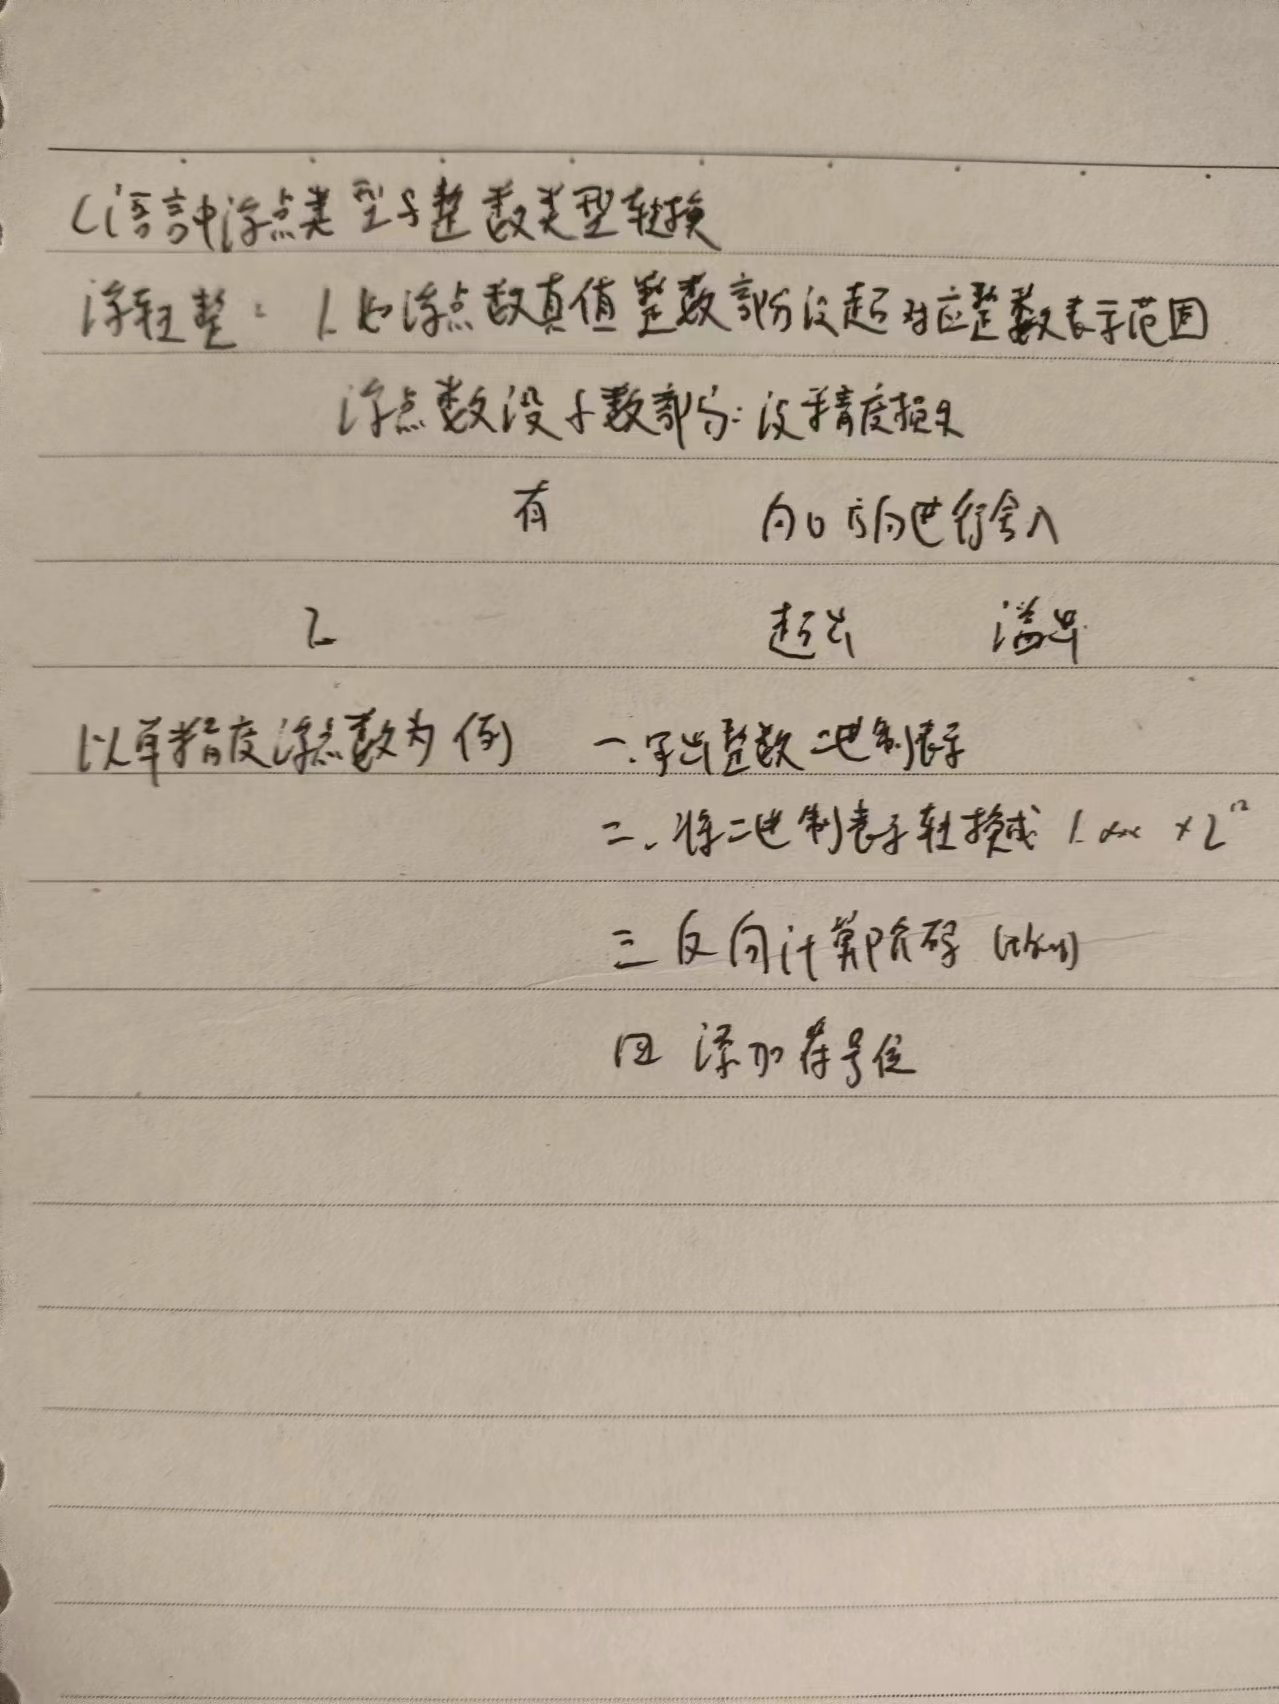 C语言中浮点类型与整数类型转换
浮转整: 1. 如浮点数真值整数部分没超对应整数表示范围
浮点数没小数部分: 没精度损失
有 向0方向进行舍入
2. 超出 溢出
以单精度浮点数为例 一.写出整数二进制表示
二、将二进制表示转换成 1.xxx × 2ⁿ
三 反向计算阶码
四 添加符号位